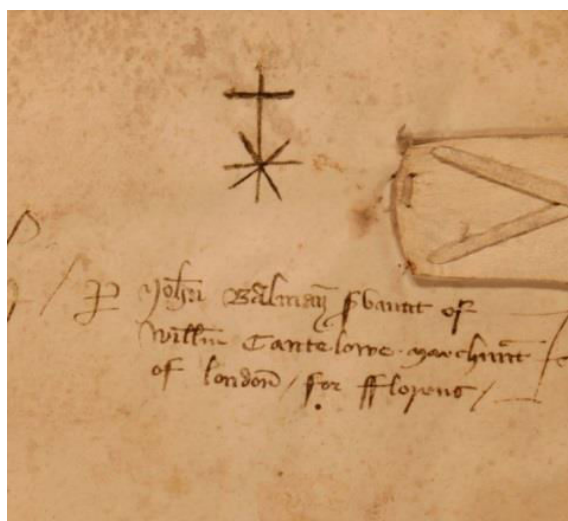 John Balman s'vant of
Will'm Cantelowe marchant
of london / for fflorens /